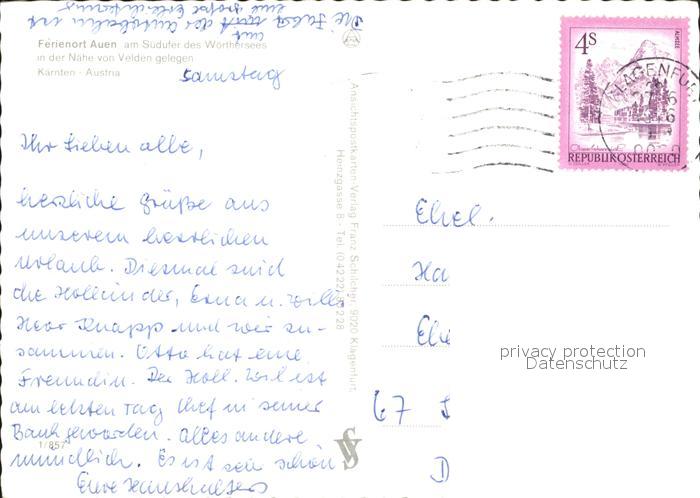 Die Fahrt mit der Autobahn ist
eine große Erleichterung
Ferienort Auen am Südufer des Wörthersees
in der Nähe von Velden gelegen
Kärnten - Austria
Samstag
Ihr Lieben alle,
herzliche Grüße aus
unserem herrlichen
Urlaub. Diesmal sind
die Holländer, Erna u. Willi
Herr Knapp und wir zu-
sammen. Otto hat eine
Freundin. Der Holl. Wil ist
am letzten Tag Chef in seiner
Bank geworden. Alles andere
mündlich. Es ist sehr schön
Eure
1/857
Ansichtspostkarten-Verlag Franz Schilcher, 9020 Klagenfurt,
Henzgasse 8 - Tel. (04222)
4S
ALMSEE
REPUBLIK ÖSTERREICH
KLAGENFURT
Ehel.
Ha
67
D
privacy protection
Datenschutz